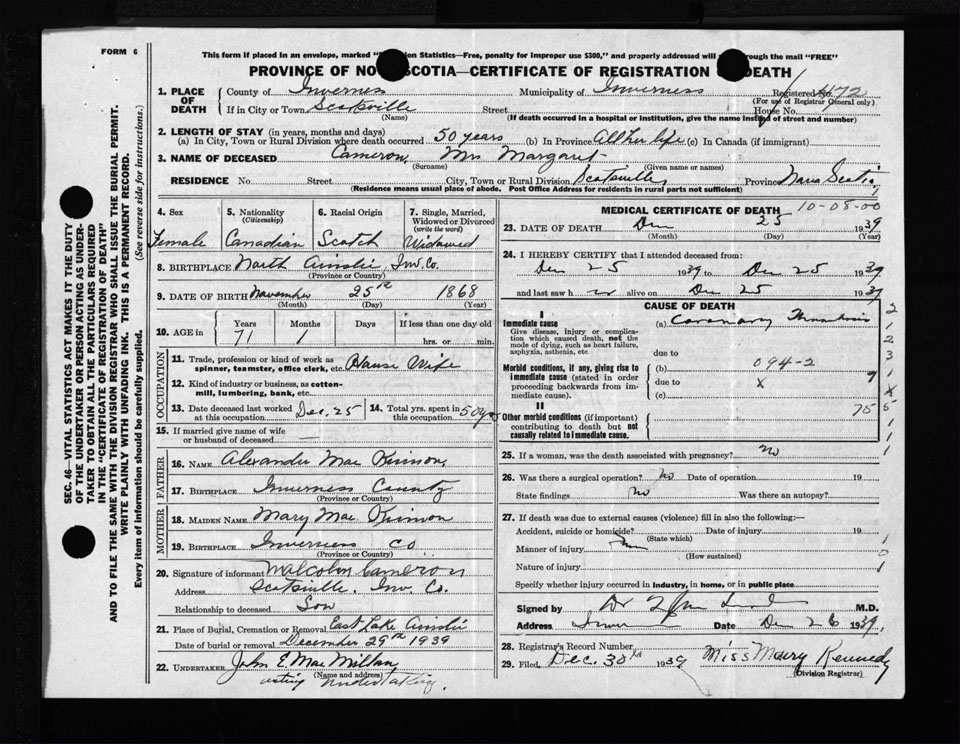 FORM 6
This form if placed in an envelope, marked Statistics—Free, penalty for improper use $300," and properly addressed will through the mail "FREE"
PROVINCE OF NO SCOTIA—CERTIFICATE OF REGISTRATION O DEATH
1. PLACE OF DEATH County of Inverness Municipality of Inverness Registered No.
(For use of Registrar General only)
If in City or Town Scotsville Street House No.
(Name) (If death occurred in a hospital or institution, give the name instead of street and number)
2. LENGTH OF STAY (in years, months and days)
(a) In City, Town or Rural Division where death occurred 50 years (b) In Province All her life (c) In Canada (if immigrant)
3. NAME OF DECEASED Cameron, Mrs Margaret
(Surname) (Given name or names)
RESIDENCE No. Street City, Town or Rural Division Scotsville, Province Nova Scotia
(Residence means usual place of abode. Post Office Address for residents in rural parts not sufficient)
4. Sex 5. Nationality (Citizenship) 6. Racial Origin 7. Single, Married, Widowed or Divorced (write the word)
Female Canadian Scotch Widowed
8. BIRTHPLACE North Ainslie, Inv. Co.
(Province or Country)
9. DATE OF BIRTH November 25th 1868
(Month) (Day) (Year)
10. AGE in Years Months Days If less than one day old
71 1 hrs. or min.
OCCUPATION
11. Trade, profession or kind of work as spinner, teamster, office clerk, etc. House Wife
12. Kind of industry or business, as cotton-mill, lumbering, bank, etc.
13. Date deceased last worked at this occupation Dec. 25 14. Total yrs. spent in this occupation 50 yrs
15. If married give name of wife or husband of deceased —
FATHER
16. NAME Alexander Mac Kinnon,
17. BIRTHPLACE Inverness County
(Province or Country)
MOTHER
18. MAIDEN NAME Mary Mac Kinnon
19. BIRTHPLACE Inverness Co.
(Province or Country)
20. Signature of informant Malcolm Cameron
Address Scotsville, Inv. Co.
Relationship to deceased Son
21. Place of Burial, Cremation or Removal East Lake Ainslie
Date of burial or removal December 29th 1939
22. UNDERTAKER John E Mac Millan,
(Name and address)
acting Undertaking.
MEDICAL CERTIFICATE OF DEATH 10-08-00
23. DATE OF DEATH Dec 25 1939
(Month) (Day) (Year)
24. I HEREBY CERTIFY that I attended deceased from:
Dec 25 1939 to Dec 25 1939
and last saw h er alive on Dec 25 1939
CAUSE OF DEATH
I
Immediate cause (a) Coronary Thrombosis
Give disease, injury or complication which caused death, not the mode of dying, such as heart failure, asphyxia, asthenia, etc
due to
Morbid conditions, if any, giving rise to immediate cause (stated in order proceeding backwards from immediate cause).
(b) 094-2
due to x 7
(c)
II
Other morbid conditions (if important) contributing to death but not causally related to immediate cause.
75
2
1
2
3
1
X
5
1
1
1
25. If a woman, was the death associated with pregnancy? no
26. Was there a surgical operation? No Date of operation 19
State findings no Was there an autopsy?
27. If death was due to external causes (violence) fill in also the following:—
Accident, suicide or homicide? Date of injury 19
(State which)
Manner of injury
(How sustained)
Nature of injury
1
0
1
Specify whether injury occurred in industry, in home, or in public place
Signed by Dr M.D.
Address Date Dec 26 1939.
28. Registrar's Record Number
29. Filed, Dec. 30th 1939 Miss Mary Kennedy
(Division Registrar)
SEC. 46—VITAL STATISTICS ACT MAKES IT THE DUTY
OF THE UNDERTAKER OR PERSON ACTING AS UNDER-
TAKER TO OBTAIN ALL THE PARTICULARS REQUIRED
IN THE "CERTIFICATE OF REGISTRATION OF DEATH"
AND TO FILE THE SAME WITH THE DIVISION REGISTRAR WHO SHALL ISSUE THE BURIAL PERMIT.
WRITE PLAINLY WITH UNFADING INK. THIS IS A PERMANENT RECORD.
Every item of information should be carefully supplied. (See reverse side for instructions.)